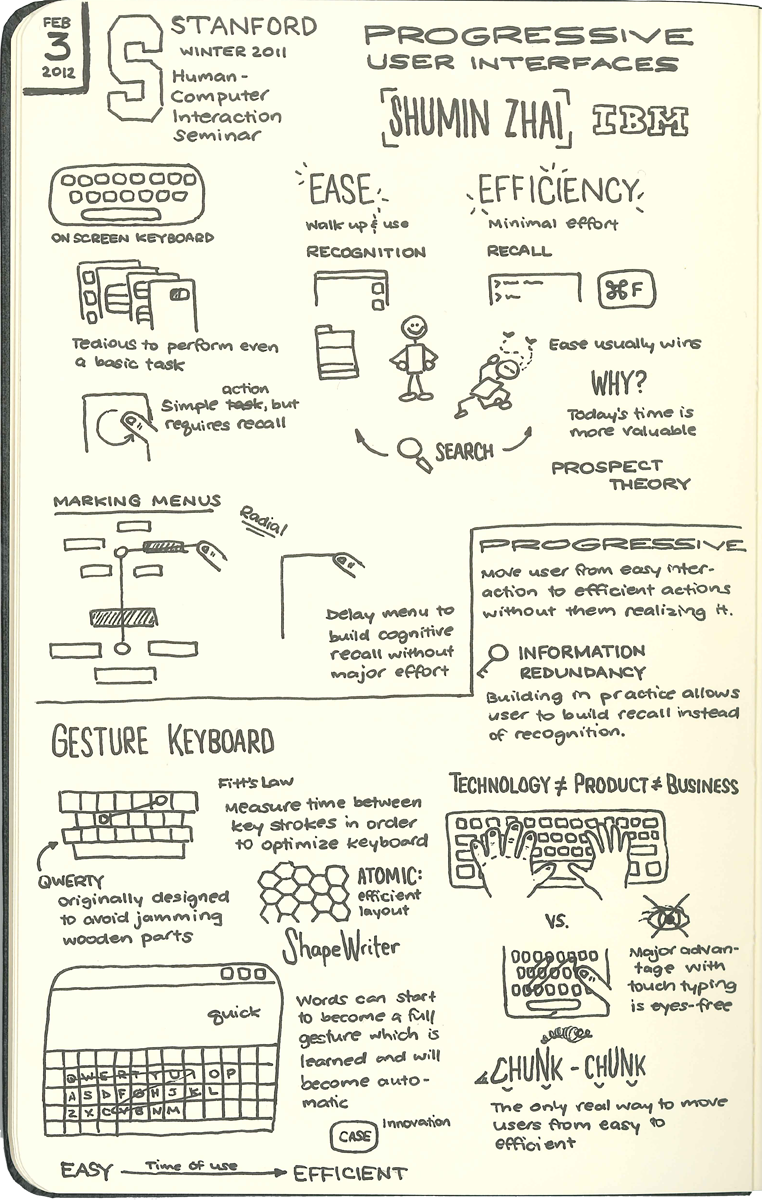 FEB
3
2012
S
STANFORD
WINTER 2011
Human-
Computer
Interaction
Seminar
PROGRESSIVE
USER INTERFACES
[SHUMIN ZHAI]
IBM
ON SCREEN KEYBOARD
EASE
Walk up & use
RECOGNITION
EFFICIENCY
Minimal effort
RECALL
⌘F
Tedious to perform even
a basic task
action
Simple task, but
requires recall
Ease usually wins
WHY?
Today's time is
more valuable
PROSPECT
THEORY
SEARCH
MARKING MENUS
Radial
Delay menu to
build cognitive
recall without
major effort
PROGRESSIVE
Move user from easy inter-
action to efficient actions
without them realizing it.
INFORMATION
REDUNDANCY
Building in practice allows
user to build recall instead
of recognition.
GESTURE KEYBOARD
Fitt's Law
Measure time between
key strokes in order
to optimize keyboard
QWERTY
originally designed
to avoid jamming
wooden parts
ATOMIC:
efficient
layout
ShapeWriter
quick
Q W E R T Y U I O P
A S D F G H J K L
Z X C V B N M
Words can start
to become a full
gesture which is
learned and will
become auto-
matic
CASE
Innovation
EASY Time of use EFFICIENT
TECHNOLOGY ≠ PRODUCT ≠ BUSINESS
VS.
Major advan-
tage with
touch typing
is eyes-free
CHUNK - CHUNK
The only real way to move
users from easy to
efficient